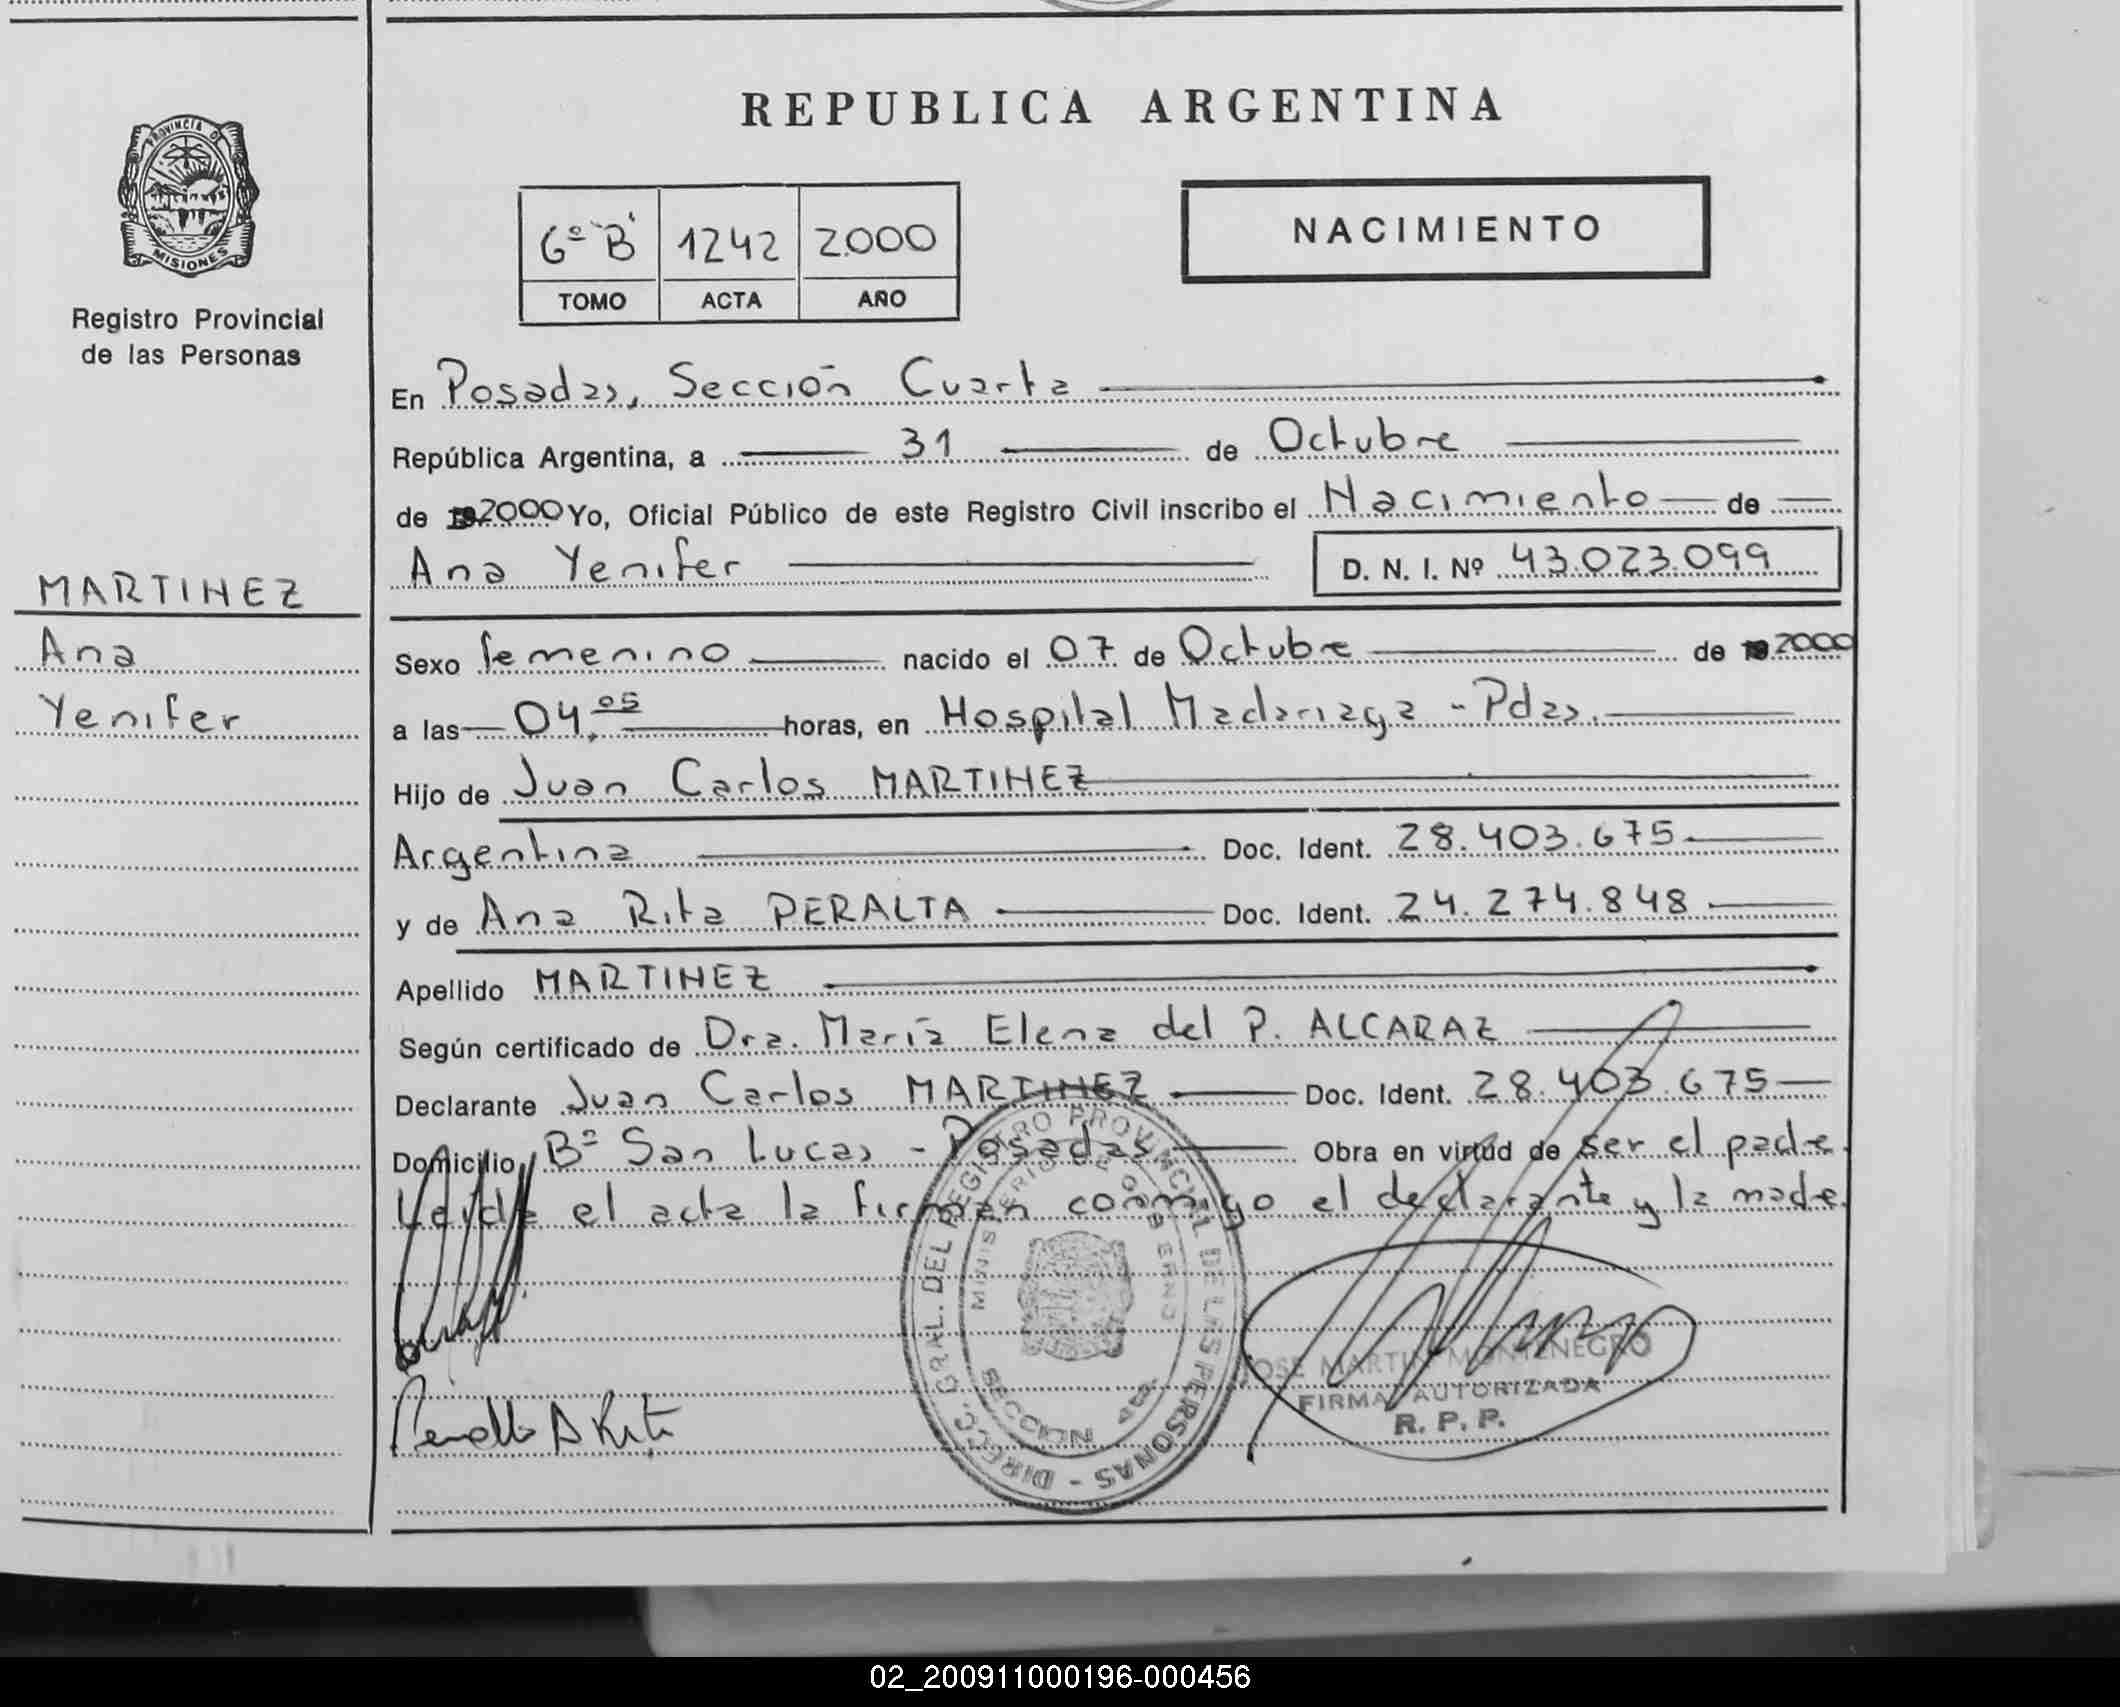 REPUBLICA ARGENTINA
PROVINCIA DE
MISIONES
Registro Provincial
de las Personas
6º "B" 1242 2000
TOMO ACTA AÑO
NACIMIENTO
En Posadas, Sección Cuarta
República Argentina, a 31 de Octubre
de 2000 Yo, Oficial Público de este Registro Civil inscribo el Nacimiento de
Ana Yenifer D. N. I. Nº 43.023.099
MARTINEZ
Ana
Yenifer
Sexo femenino nacido el 07 de Octubre de 2000
a las 04.05 horas, en Hospital Madariaga - Pdas.
Hijo de Juan Carlos MARTINEZ
Argentina Doc. Ident. 28.403.675
y de Ana Rita PERALTA Doc. Ident. 24.274.848
Apellido MARTINEZ
Según certificado de Dra. María Elena del P. ALCARAZ
Declarante Juan Carlos MARTINEZ Doc. Ident. 28.403.675
Domicilio Bº San Lucas - Posadas Obra en virtud de ser el padre.
Leida el acta la firman conmigo el declarante y la madre.
DIRECC. GRAL. DEL REGISTRO PROVINCIAL DE LAS PERSONAS -
MINISTERIO DE GOBIERNO
SECCION 4ta.
JOSE MARTIN MONTENEGRO
FIRMA AUTORIZADA
R. P. P.
Peralta A Rita
02_200911000196-000456